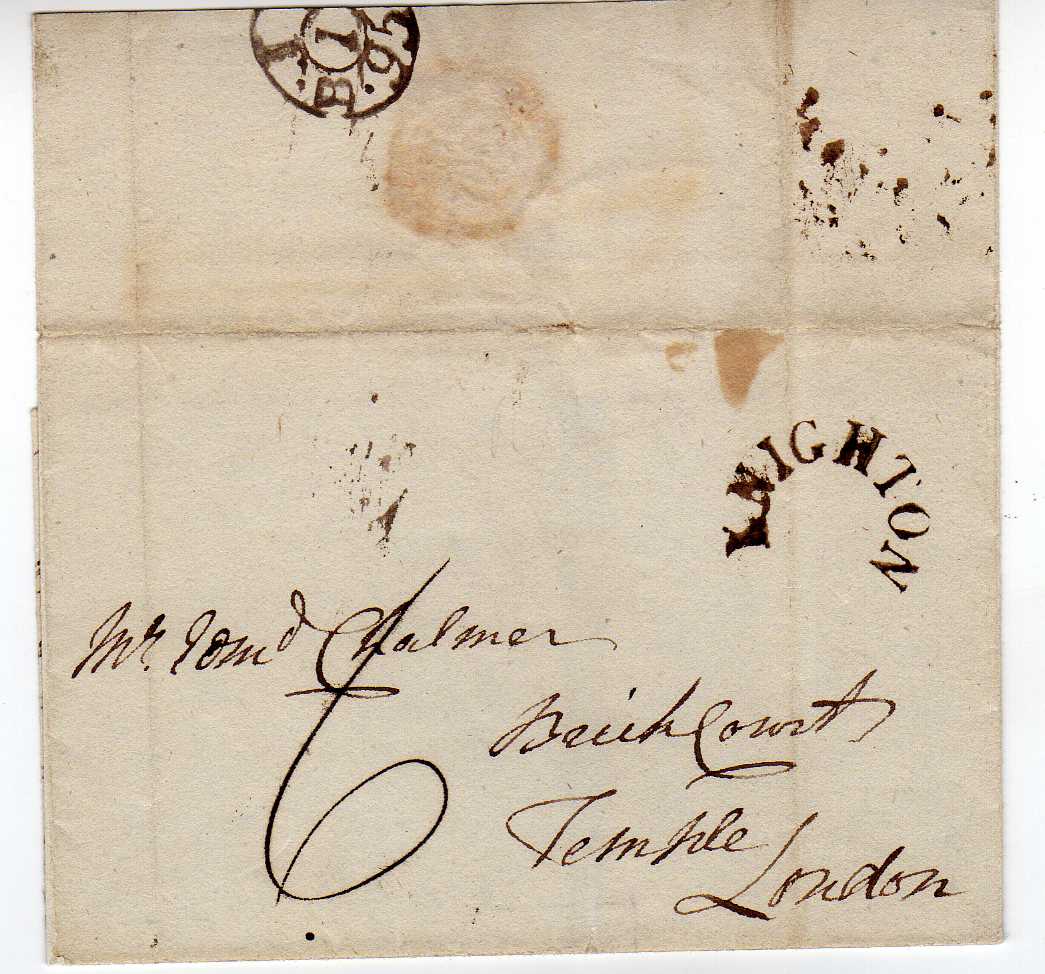 1
B
95
KNIGHTON
Mr. Edmd Chalmer
6
Brick Court
Temple
London